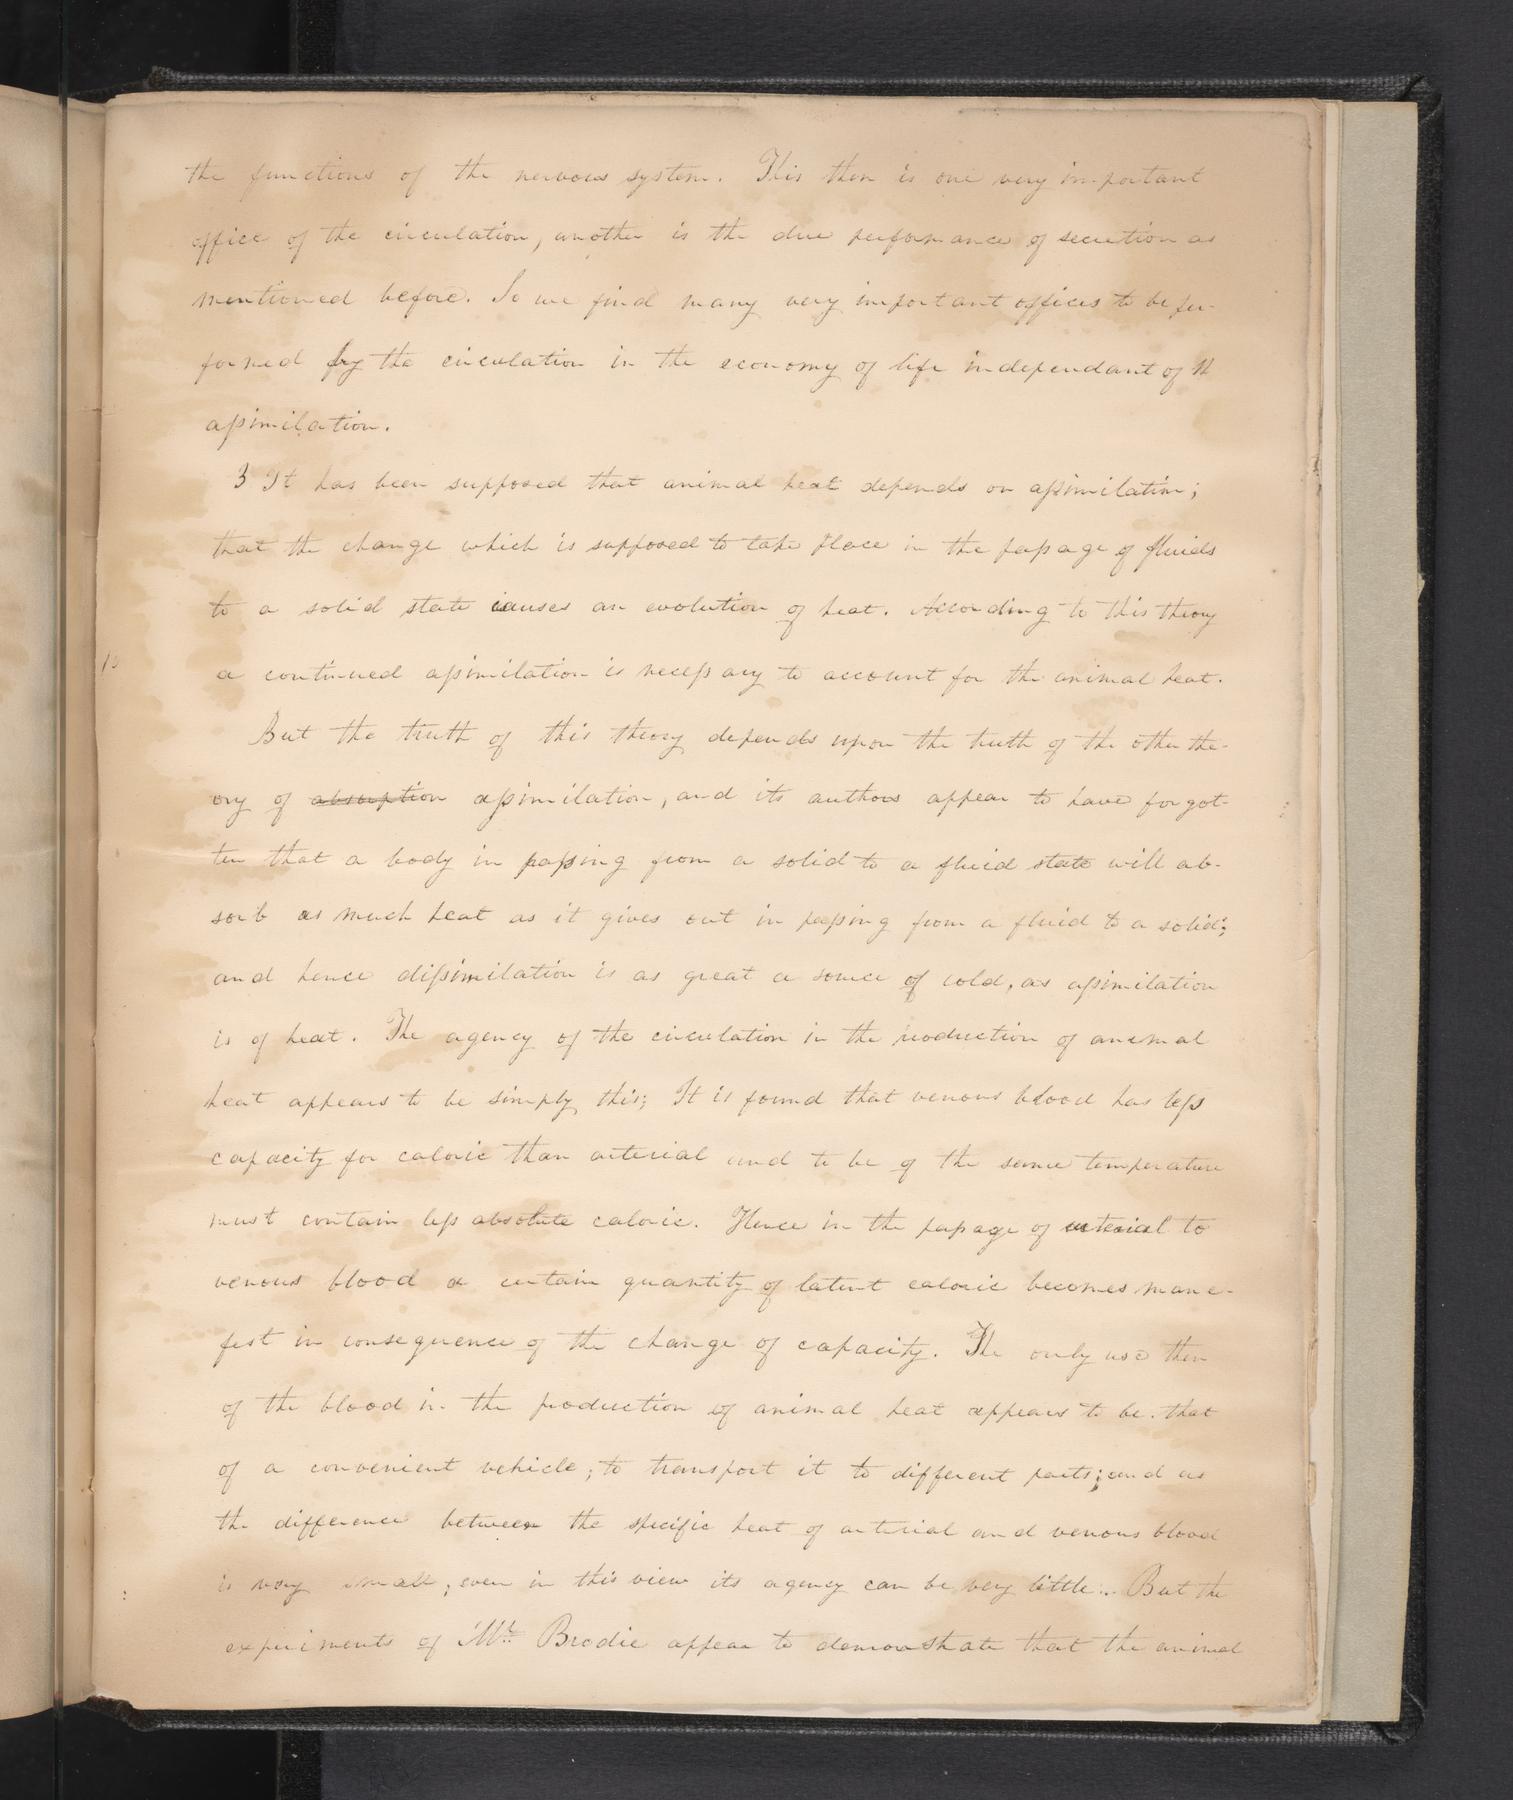 the functions of the nervous system. This then is one very important
office of the circulation, another is the due performance of secretion as
mentioned before. So we find many very important offices to be per-
formed by the circulation in the economy of life independant of
assimilation.
3 It has been supposed that animal heat depends on assimilation;
that the change which is supposed to take place in the passage of fluids
to a solid state causes an evolution of heat. According to this theory
a continued assimilation is necessary to account for the animal heat.
But the truth of this theory depends upon the truth of the other the-
ory of absorption assimilation, and its authors appear to have forgot-
ten that a body in passing from a solid to a fluid state will ab-
sorb as much heat as it gives out in passing from a fluid to a solid;
and hence dissimilation is as great a source of cold, as assimilation
is of heat. The agency of the circulation in the production of animal
heat appears to be simply this; It is found that venous blood has less
capacity for caloric than arterial and to be of the same temperature
must contain less absolute caloric. Hence in the passage of arterial to
venous blood a certain quantity of latent caloric becomes mane-
fest in consequence of the change of capacity. The only use then
of the blood in the production of animal heat appears to be that
of a convenient vehicle; to transport it to different parts; and as
the difference between the specific heat of arterial and venous blood
is very small, even in this view its agency can be very little. But the
experiments of Mr. Brodie appear to demonstrate that the animal